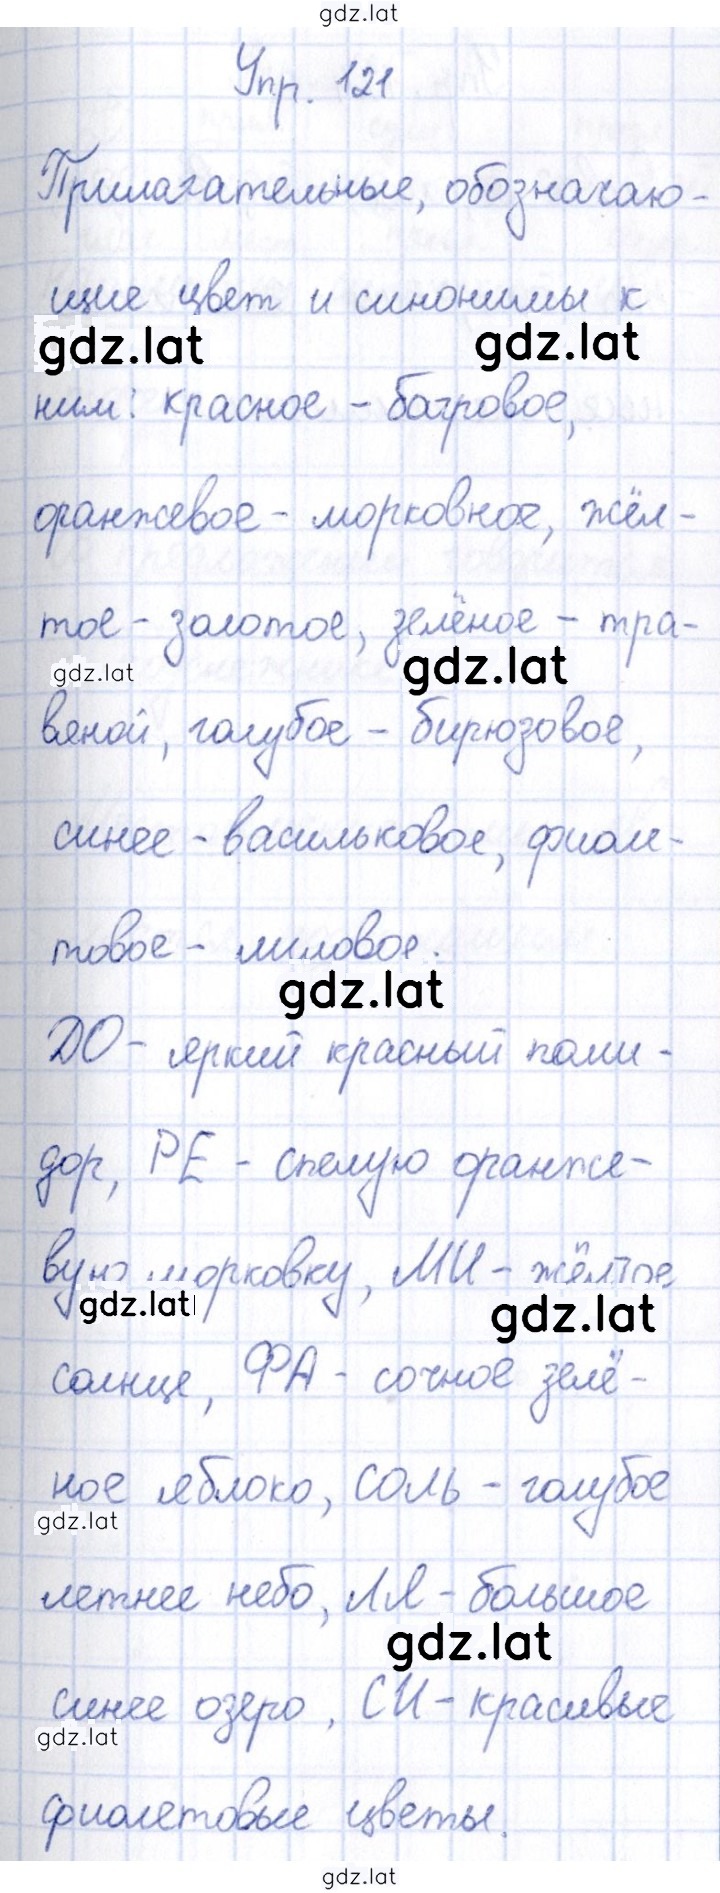 gdz.lat
Упр. 121
Прилагательные, обозначаю-
щие цвет и синонимы к
gdz.lat gdz.lat
ним: красное - багровое,
оранжевое - морковное, жёл-
тое - золотое, зелёное - тра-
gdz.lat gdz.lat
вяной, голубое - бирюзовое,
синее - васильковое, фиоле-
товое - лиловое.
gdz.lat
ДО - яркий красный поми-
дор, РЕ - спелую оранже-
вую морковку, МИ - жёлтое
gdz.lat gdz.lat
солнце, ФА - сочное зелё-
ное яблоко, СОЛЬ - голубое
gdz.lat
летнее небо, ЛЯ - большое
gdz.lat
синее озеро, СИ - красивые
gdz.lat
фиолетовые цветы.
gdz.lat